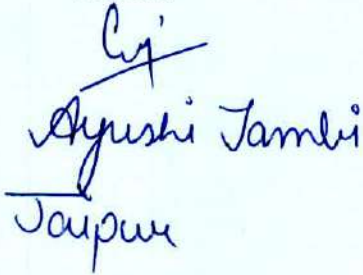 Ayushi Tambi
Jaipur